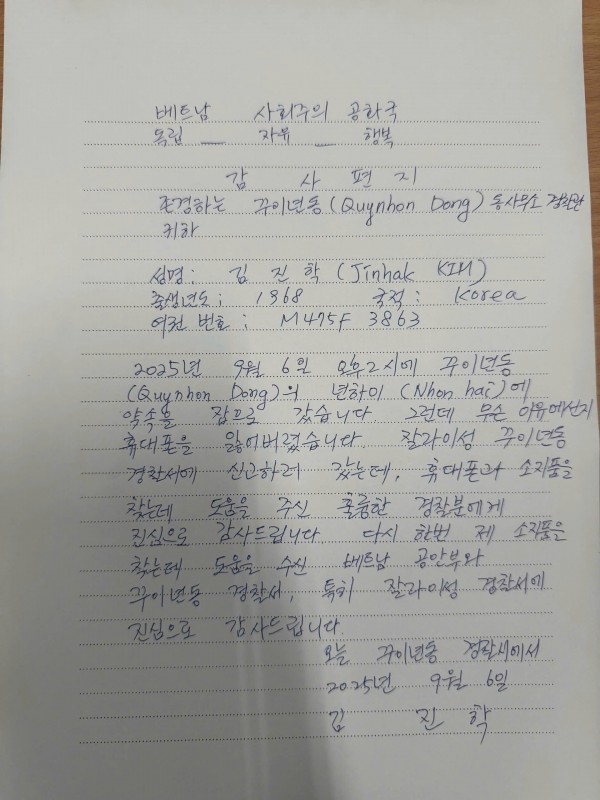 베트남 사회주의 공화국
독립 _ 자유 _ 행복
감 사 편 지
존경하는 꾸이년동(Quynhon Dong) 동사무소 경찰관
귀하
성명: 김 진 학 (Jinhak KIM)
출생년도: 1968 국적: Korea
여권 번호: M475F 3863
2025년 9월 6일 오후2시에 꾸이년동
(Quynhon Dong)의 년하이 (Nhon hai)에
약속을 잡으로 갔습니다. 그런데 무슨 이유에선지
휴대폰을 잃어버렸습니다. 잘라이성 꾸이년동
경찰서에 신고하러 갔는데, 휴대폰과 소지품을
찾는데 도움을 주신 훌륭한 경찰분에게
진심으로 감사드립니다. 다시 한번 제 소지품을
찾는데 도움을 주신 베트남 공안부와
꾸이년동 경찰서, 특히 잘라이성 경찰서에
진심으로 감사드립니다.
오늘 꾸이년동 경찰서에서
2025년 9월 6일
김 진 학